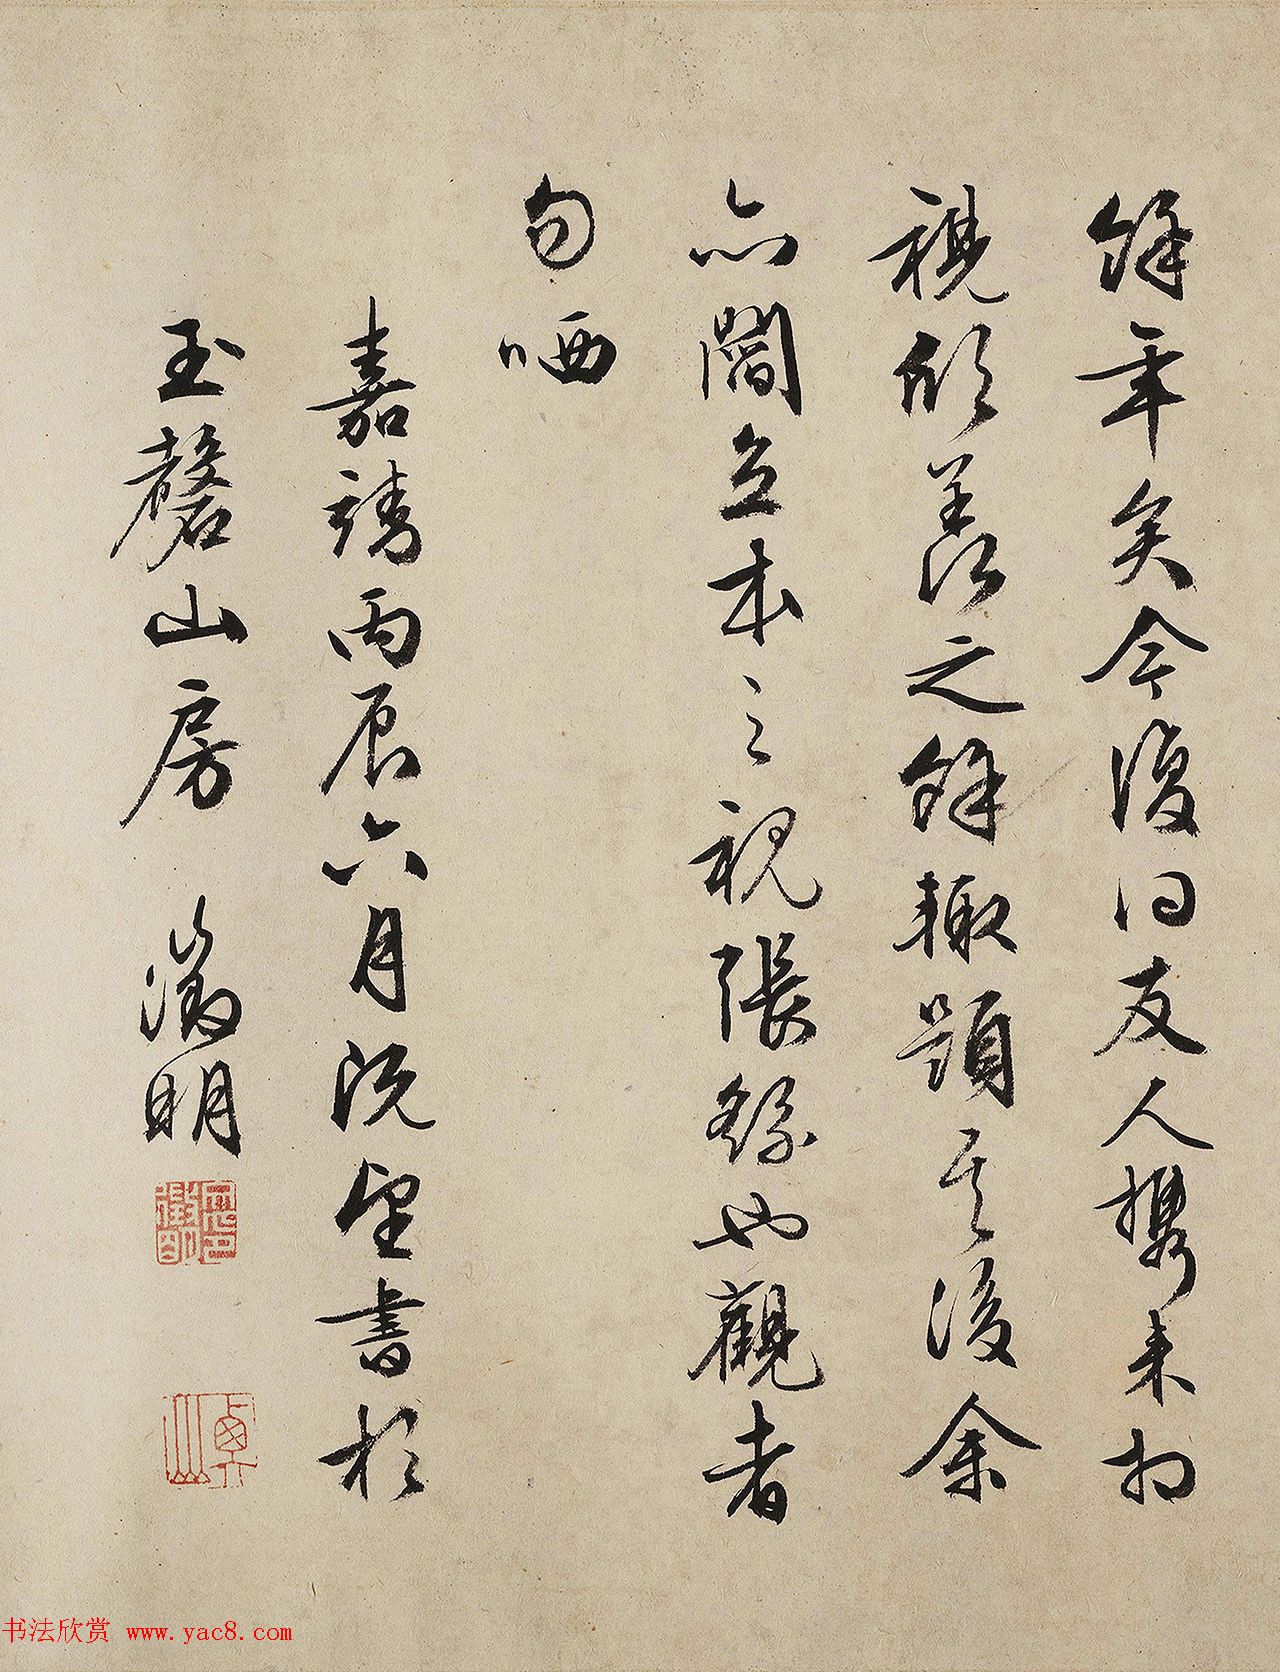 餘年矣今復同友人攜来相
視欣羨之餘輙題其後余
亦閻立本之視張繇也觀者
勿哂
嘉靖丙辰六月既望書於
玉磬山房 徵明
书法欣赏 www.yac8.com